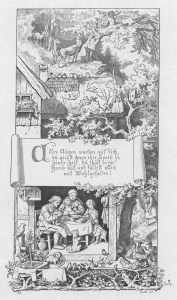 Aller Augen warten auf dich,
du gibst ihnen ihre Speise zu
seiner Zeit, du thust deine
Hand auf und sättigst alles
mit Wohlgefallen!